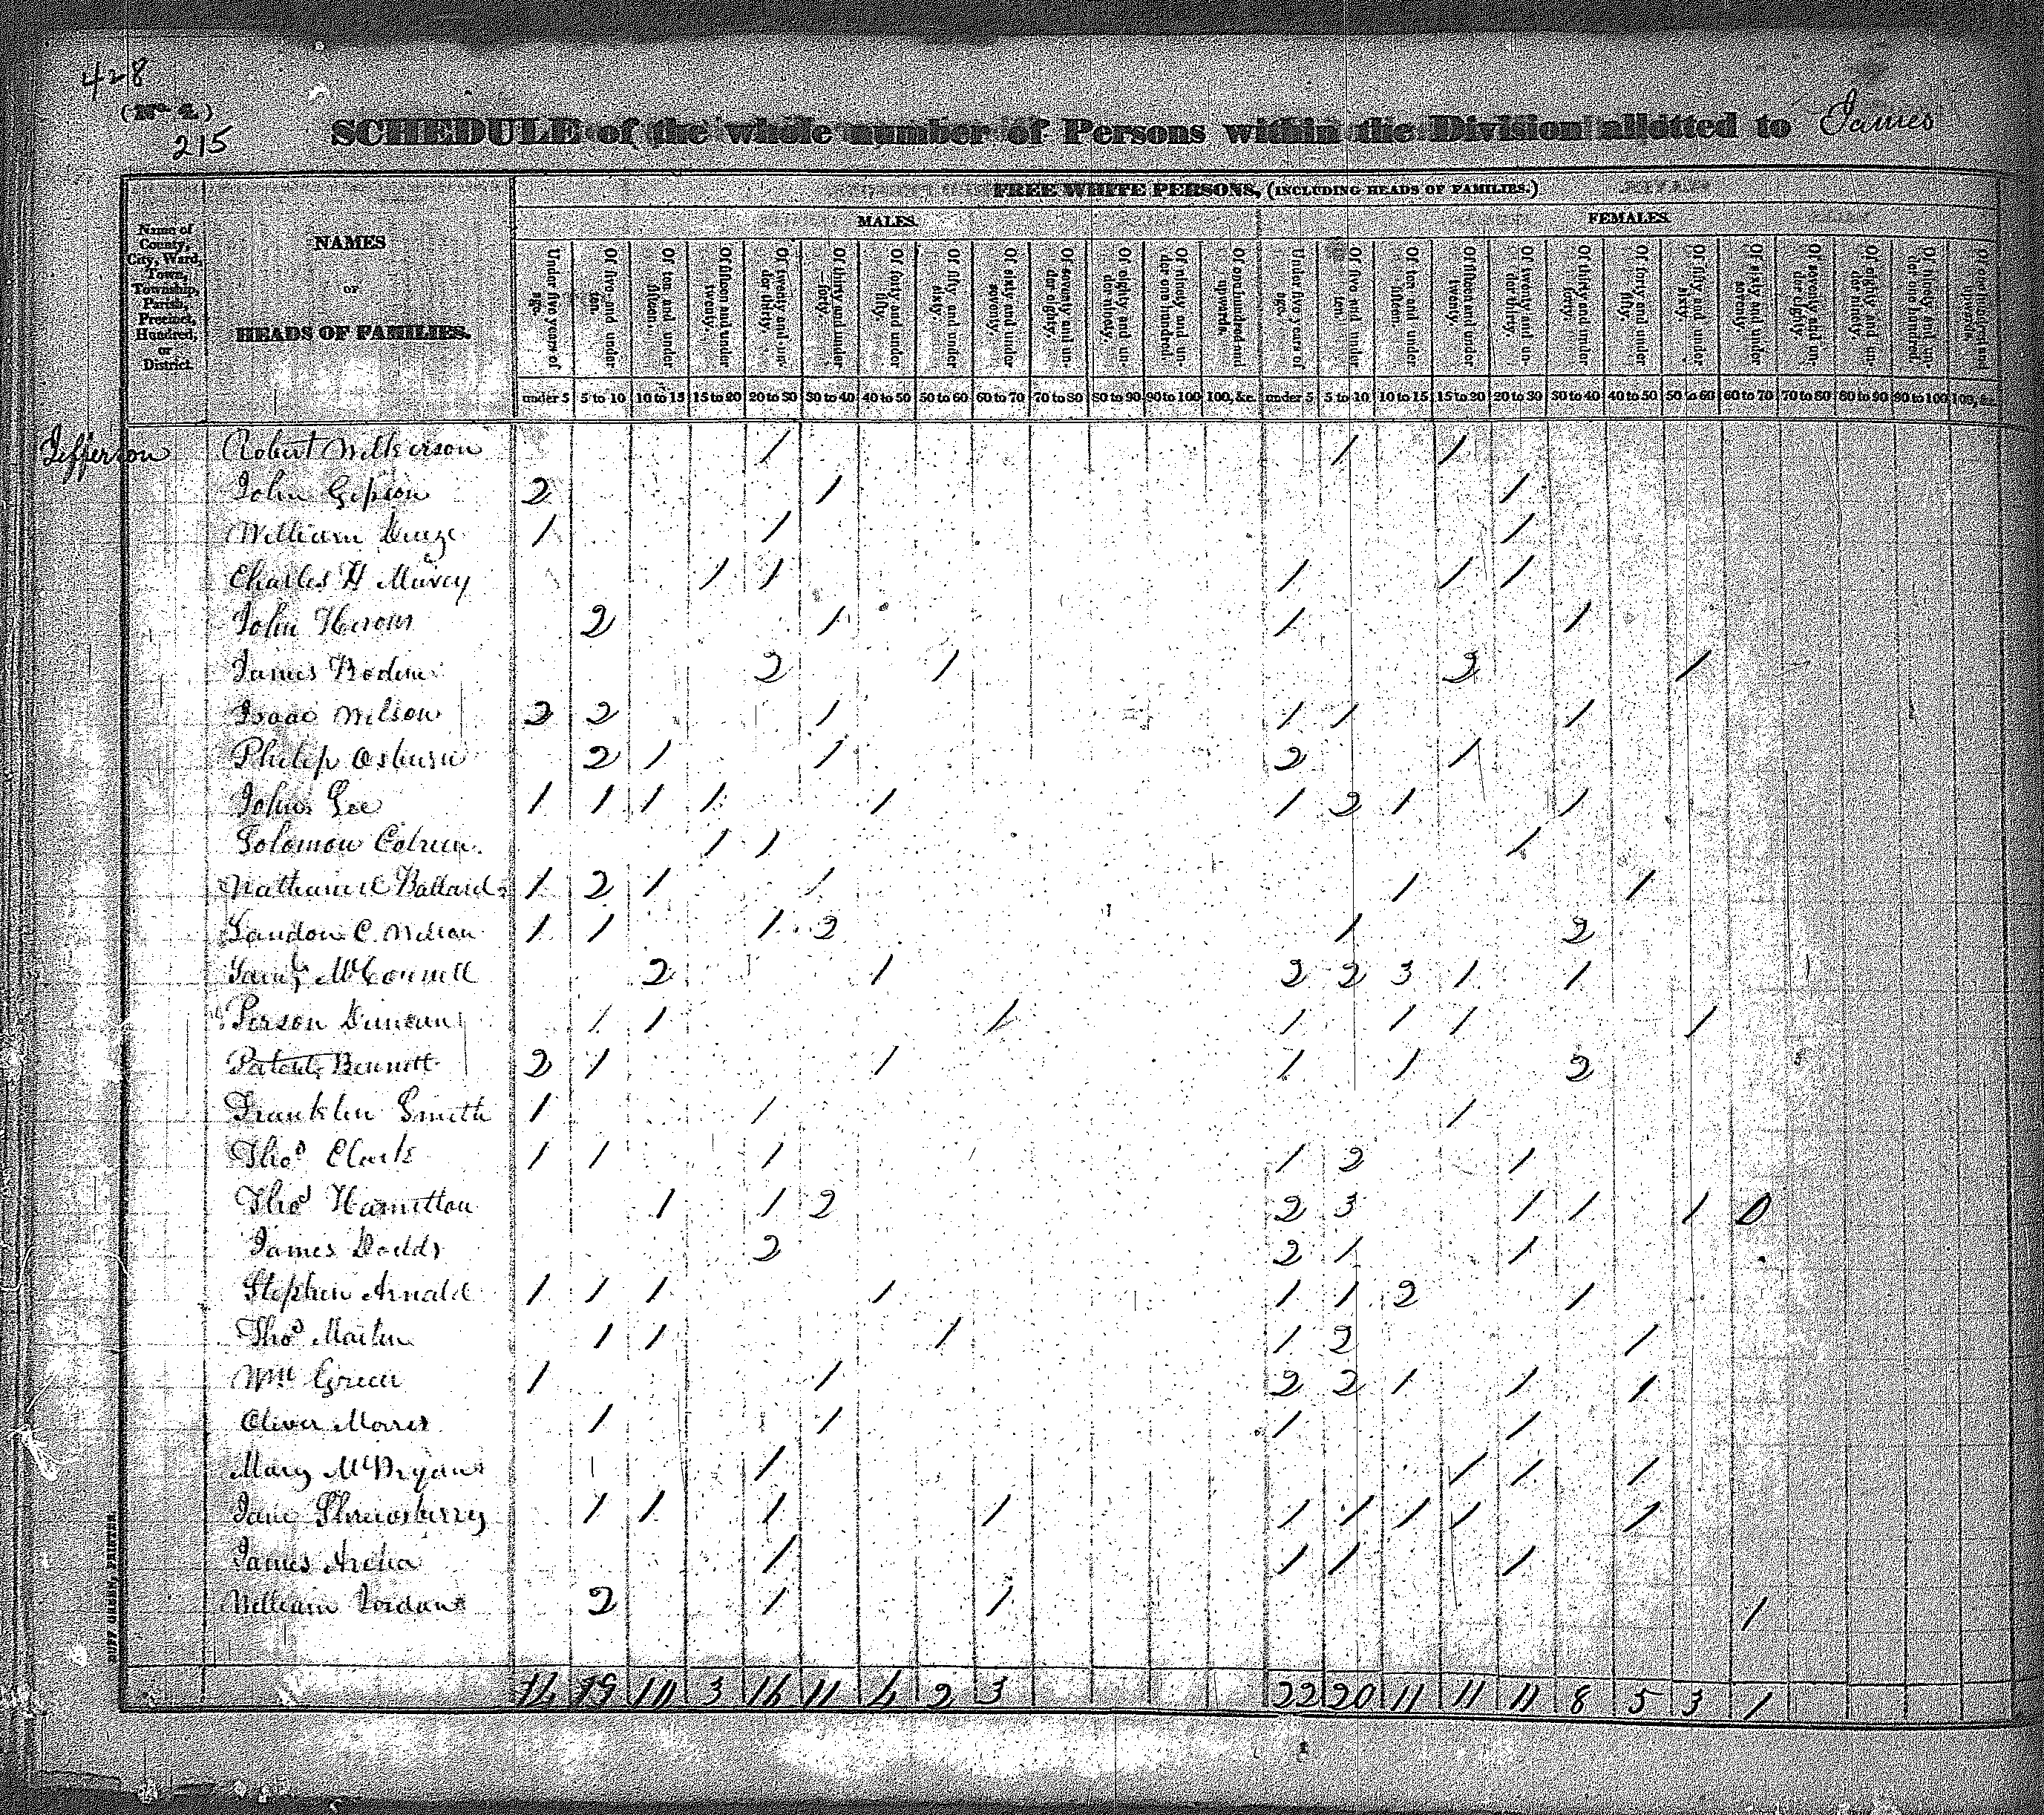 428
(No. 4.)
215
SCHEDULE of the whole number of Persons within the Division allotted to James
FREE WHITE PERSONS, (INCLUDING HEADS OF FAMILIES.)
MALES. FEMALES.
Name of County, City, Ward, Town, Township, Parish, Precinct, Hundred, or District.
NAMES
OF
HEADS OF FAMILIES.
Under five years of age. Of five and under ten. Of ten and under fifteen. Of fifteen and under twenty. Of twenty and under thirty. Of thirty and under forty. Of forty and under fifty. Of fifty and under sixty. Of sixty and under seventy. Of seventy and under eighty. Of eighty and under ninety. Of ninety and under one hundred. Of one hundred and upwards. Under five years of age. Of five and under ten. Of ten and under fifteen. Of fifteen and under twenty. Of twenty and under thirty. Of thirty and under forty. Of forty and under fifty. Of fifty and under sixty. Of sixty and under seventy. Of seventy and under eighty. Of eighty and under ninety. Of ninety and under one hundred. Of one hundred and upwards.
under 5 5 to 10 10 to 15 15 to 20 20 to 30 30 to 40 40 to 50 50 to 60 60 to 70 70 to 80 80 to 90 90 to 100 100, &c. under 5 5 to 10 10 to 15 15 to 20 20 to 30 30 to 40 40 to 50 50 to 60 60 to 70 70 to 80 80 to 90 90 to 100 100, &c.
Jefferson Robert Wilkerson 1 1 1
John Gipson 2 1 1
William 1 1 1
Charles H 1 1 1 1 1
John 2 1 1 1
James 2 1 2 1
Isaac Wilson 2 2 1 1 1 1
Philip Osburn 2 1 1 2 1
John Lee 1 1 1 1 1 1 2 1 1
Solomon 1 1 1
Nathaniel Ballard 1 2 1 1 1 1
Landon C. Wilson 1 1 1 2 1 2
Saml McConnell 2 1 2 2 3 1 1
Person Duncan 1 1 1 1 1 1 1
Bennett 2 1 1 1 1 2
Franklin Smith 1 1 1
Thos Clark 1 1 1 1 2 1
Thos Hamilton 1 1 2 2 3 1 1 1 0
James Dodds 2 2 1 1
Stephen Arnald 1 1 1 1 1 1 2 1
Thos Martin 1 1 1 1 2 1
Wm Green 1 1 2 2 1 1 1
Oliver Morris 1 1 1 1
Mary 1 1 1 1 1
Jane Shrewsberry 1 1 1 1 1 1 1 1 1
James 1 1 1 1
William Jordan 2 1 1 1
19 10 3 16 11 2 3 22 20 11 11 11 8 5 3 1
DUFF GREEN, PRINTER.